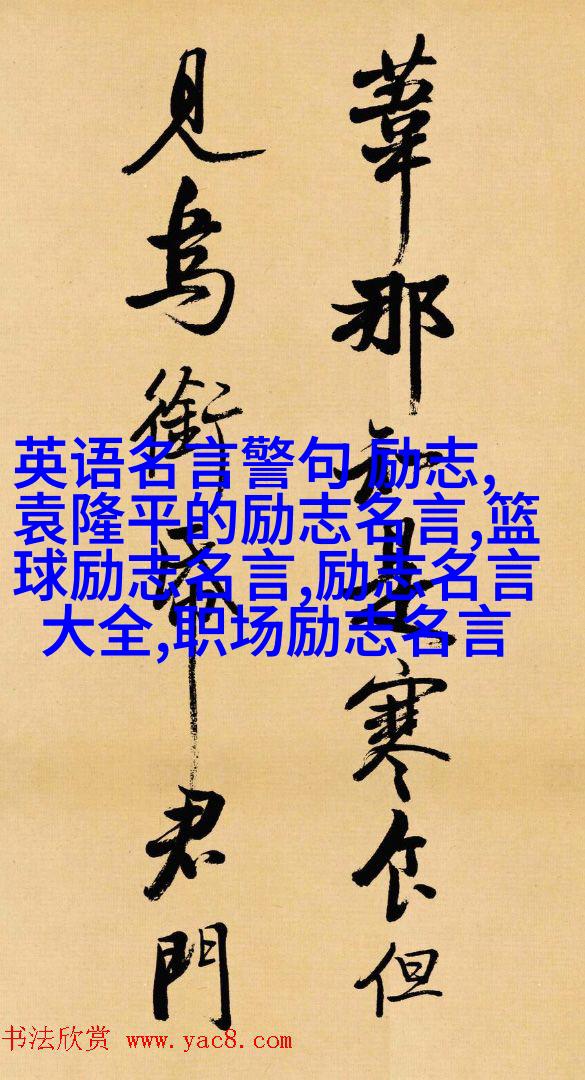 葦那知是寒食但
見烏銜帋君門
英语名言警句 励志,
袁隆平的励志名言,篮
球励志名言,励志名言
大全,职场励志名言
书法欣赏 www.yac8.com